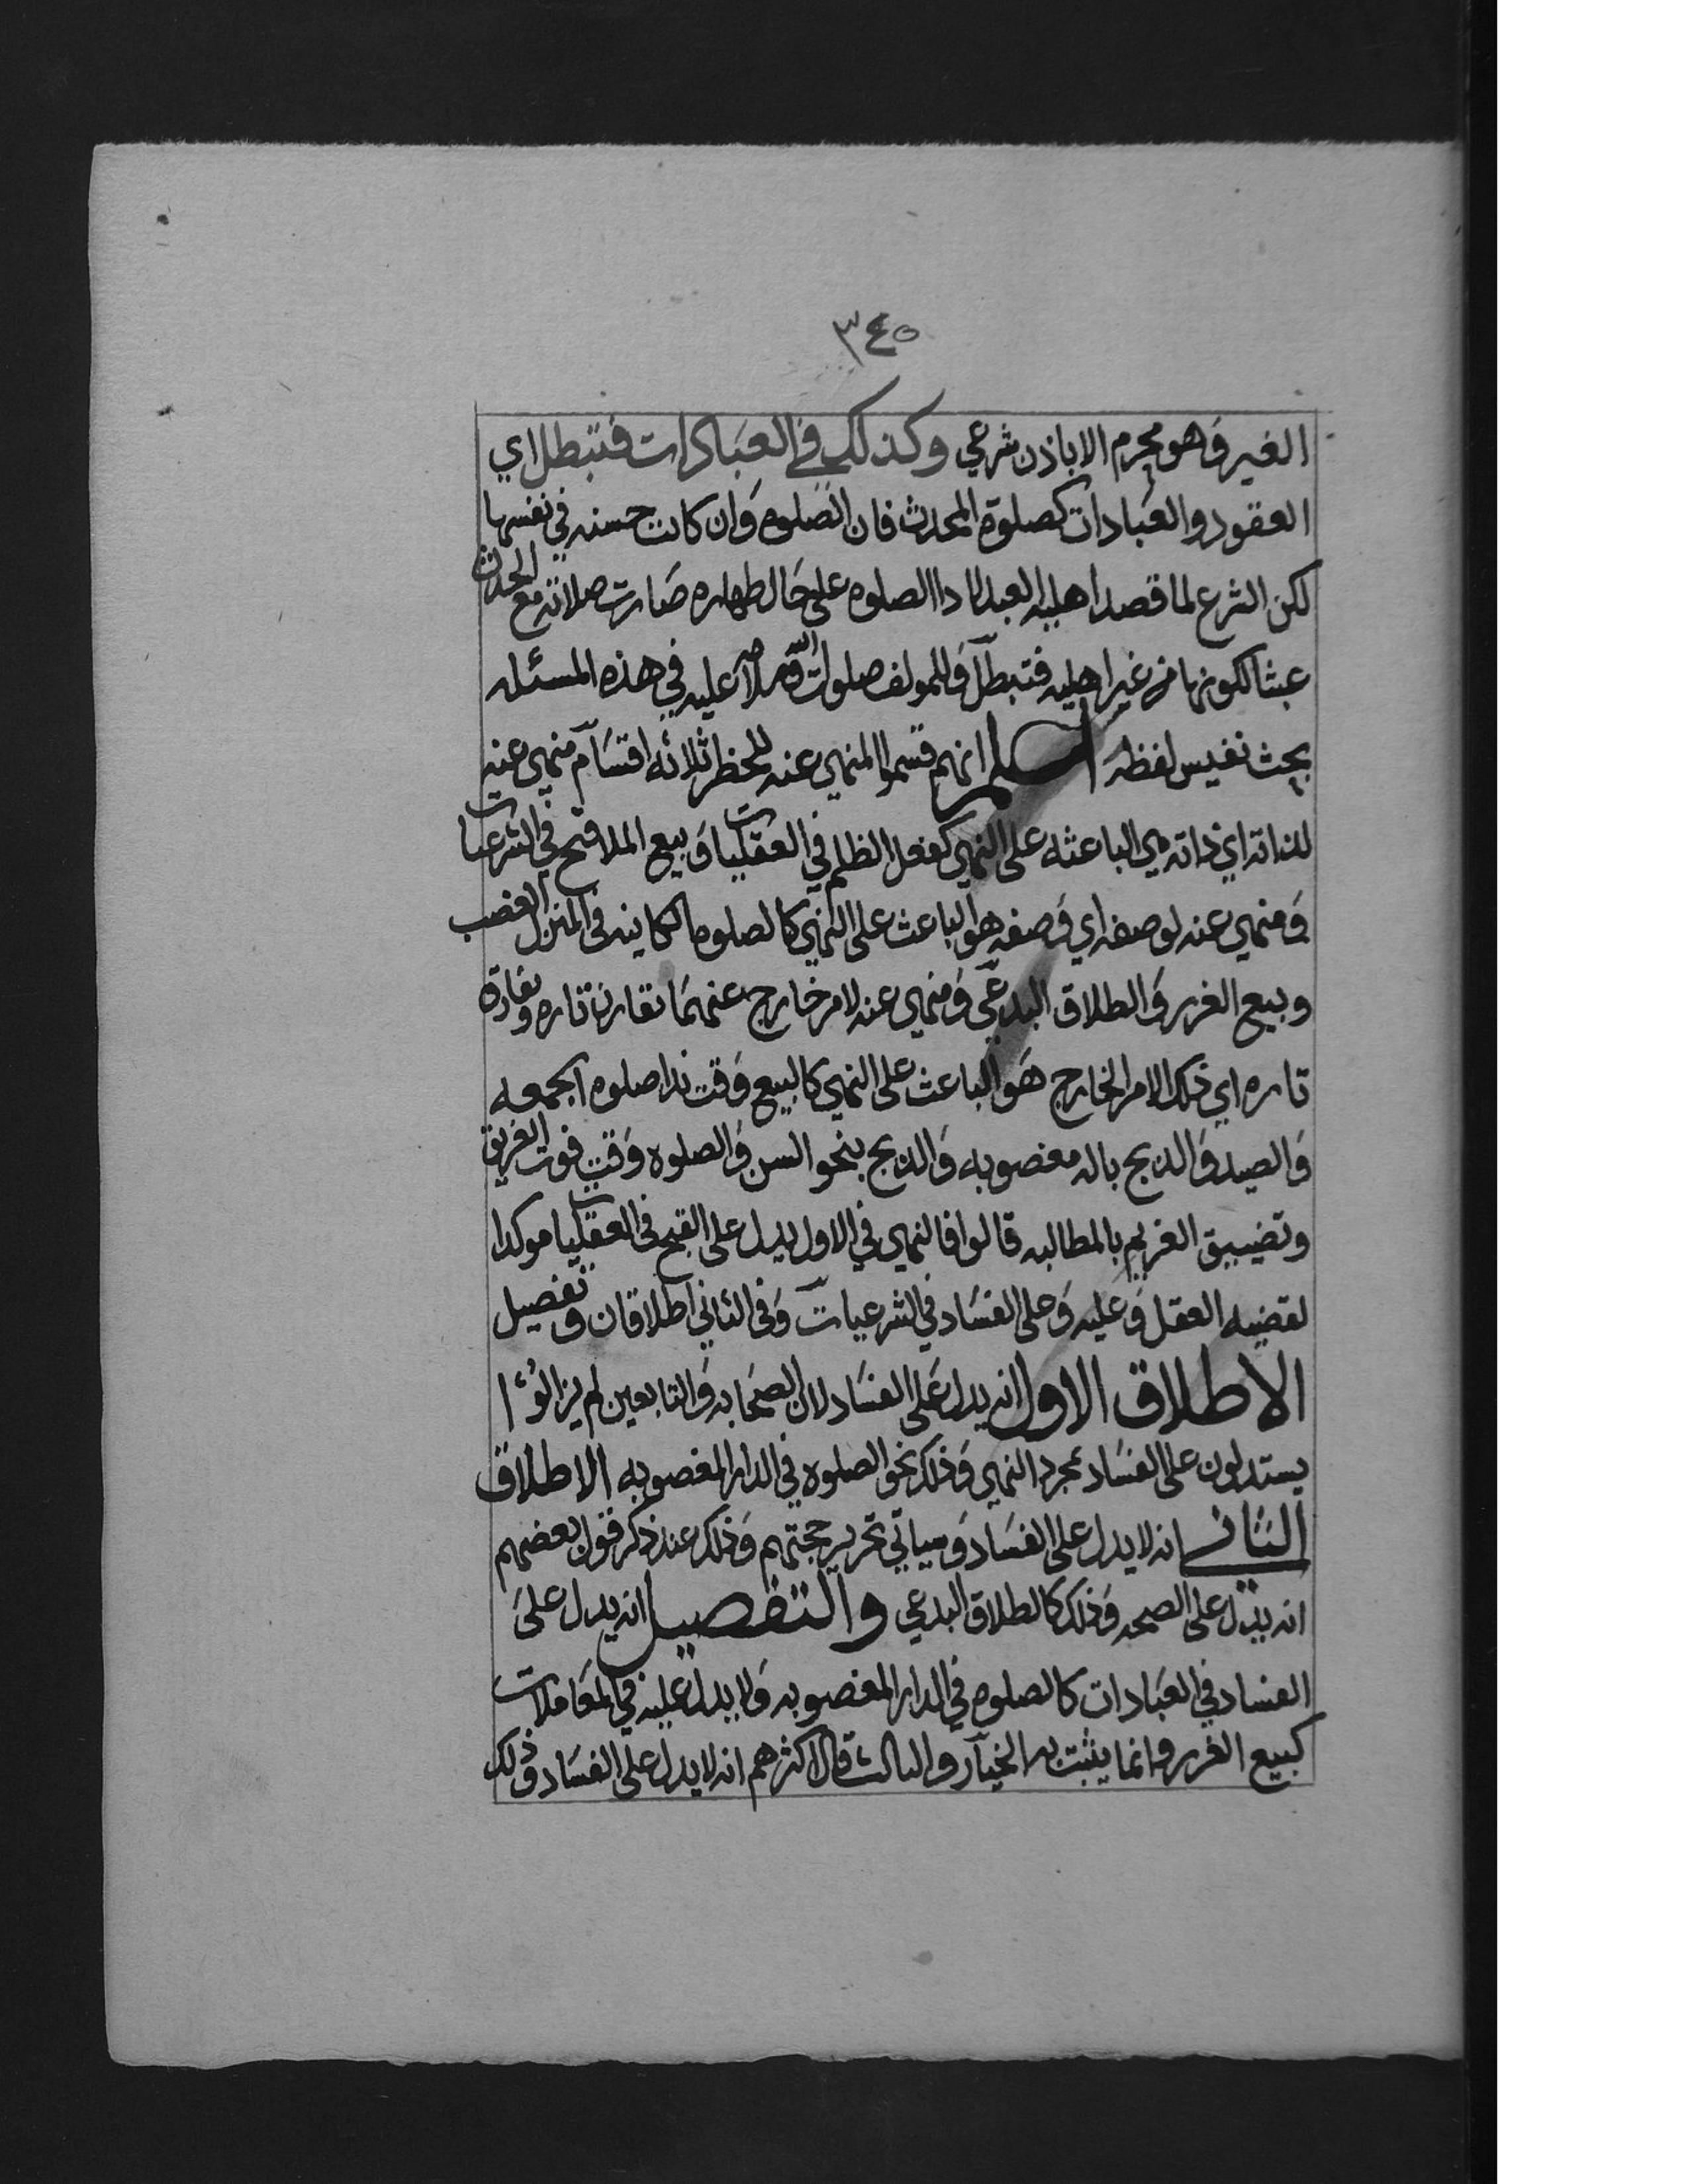 ٣٤٥
الغير وهو محرم الا باذن شرعي وكذلك في العبادات فتبطل اي
العقود والعبادات كصلوة المحدث فان الصلوه وان كانت حسنه في نفسها
لكن الشرع لما قصد اهليه العبد لادا الصلوه على حال طهاره صارت صلاته مع الحدث
عبثا لكونها من غير اهليه فتبطل وللمولف صلوات الله عليه في هذه المسئله
بحث نفيس لفظه اعلم انهم قسموا المنهي عنه للحظر ثلاثه اقسام منهي عنه
لذاته اي ذاته هي الباعثه على النهي كفعل الظلم في العقليات وبيع الملاقح في الشرعيات
ومنهي عنه لوصفه اي وصفه هو الباعث على النهي كالصلوه الكاينه في المنزل الغصب
وبيع الغرر والطلاق البدعي ومنهي عنه لامر خارج عنهما تقارن تاره وتفارق
تاره اي ذلك الامر الخارج هو الباعث على النهي كالبيع وقت ندا صلوه الجمعه
والصيد والذبح باله مغصوبه والذبح بنحو السن والصلوه وقت فوت الغريق
وتضييق الغريم بالمطالبه قالوا فالنهي في الاول يدل على القبح في العقليات موكدا
لقضيه العقل وعليه وعلى الفساد في الشرعيات وفي الثاني اطلاقان وتفصيل
الاطلاق الاول انه يدل على الفساد لان الصحابه والتابعين لم يزالوا
يستدلون على الفساد بمجرد النهي وذلك نحو الصلوه في الدار المغصوبه الاطلاق
الثاني انه لا يدل على الفساد وسياتي تحرير حجتهم وذلك عند ذكر قول بعضهم
انه يدل على الصحه وذلك كالطلاق البدعي والتفصيل انه يدل على
الفساد في العبادات كالصلوه في الدار المغصوبه ولا يدل عليه في المعاملات
كبيع الغرر وانما يثبت به الخيار والثالث قال اكثرهم انه لا يدل على الفساد وذلك